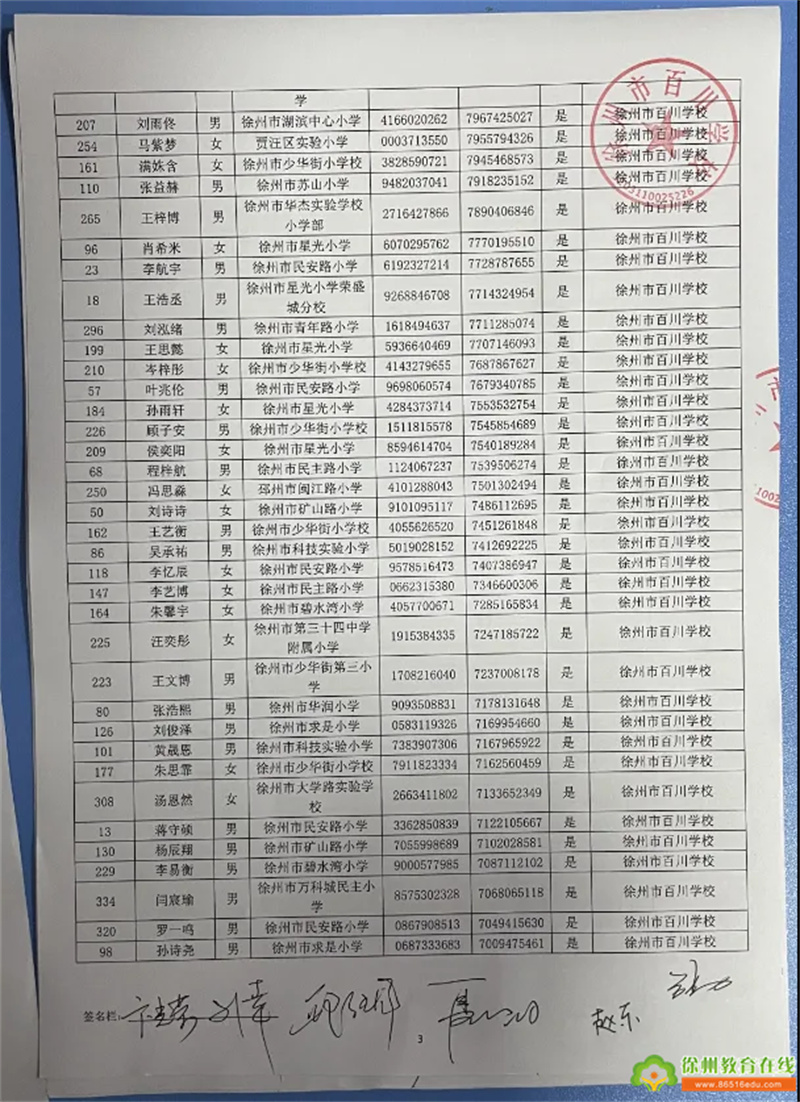 学
207 刘雨佟 男 徐州市湖滨中心小学 4166020262 7967425027 是 徐州市百川学校
254 马紫梦 女 贾汪区实验小学 0003713550 7955794326 是 徐州市百川学校
161 满姝含 女 徐州市少华街小学校 3828590721 7945468573 是 徐州市百川学校
110 张益赫 男 徐州市苏山小学 9482037041 7918235152 是 徐州市百川学校
265 王梓博 男 徐州市华杰实验学校小学部 2716427866 7890406846 是 徐州市百川学校
96 肖希米 女 徐州市星光小学 6070295762 7770195510 是 徐州市百川学校
23 李航宇 男 徐州市民安路小学 6192327214 7728787655 是 徐州市百川学校
18 王浩丞 男 徐州市星光小学荣盛城分校 9268846708 7714324954 是 徐州市百川学校
296 刘泓绪 男 徐州市青年路小学 1618494637 7711285074 是 徐州市百川学校
199 王思懿 女 徐州市星光小学 5936640469 7707146093 是 徐州市百川学校
210 岑梓彤 女 徐州市少华街小学校 4143279655 7687867627 是 徐州市百川学校
57 叶兆伦 男 徐州市民安路小学 9698060574 7679340785 是 徐州市百川学校
184 孙雨轩 女 徐州市星光小学 4284373714 7553532754 是 徐州市百川学校
226 顾子安 男 徐州市少华街小学校 1511815578 7545854689 是 徐州市百川学校
209 侯奕阳 女 徐州市星光小学 8594614704 7540189284 是 徐州市百川学校
68 程梓航 男 徐州市民主路小学 1124067237 7539506274 是 徐州市百川学校
250 冯思淼 女 邳州市闽江路小学 4101288043 7501302494 是 徐州市百川学校
50 刘诗诗 女 徐州市矿山路小学 9101095117 7486112695 是 徐州市百川学校
162 王艺衡 男 徐州市少华街小学校 4055626520 7451261848 是 徐州市百川学校
86 吴承祐 男 徐州市科技实验小学 5019028152 7412692225 是 徐州市百川学校
118 李忆辰 女 徐州市民安路小学 9578516473 7407386947 是 徐州市百川学校
147 李艺博 女 徐州市民主路小学 0662315380 7346600306 是 徐州市百川学校
164 朱馨宇 女 徐州市碧水湾小学 4057700671 7285165834 是 徐州市百川学校
225 汪奕彤 女 徐州市第三十四中学附属小学 1915384335 7247185722 是 徐州市百川学校
223 王文博 男 徐州市少华街第三小学 1708216040 7237008178 是 徐州市百川学校
80 张浩熙 男 徐州市华润小学 9093508831 7178131648 是 徐州市百川学校
126 刘俊泽 男 徐州市求是小学 0583119326 7169954660 是 徐州市百川学校
101 黄晟恩 男 徐州市科技实验小学 7383907306 7167965922 是 徐州市百川学校
177 朱思霏 女 徐州市少华街小学校 7911823334 7162560459 是 徐州市百川学校
308 汤恩然 女 徐州市大学路实验学校 2663411802 7133652349 是 徐州市百川学校
13 蒋守硕 男 徐州市民安路小学 3362850839 7122105667 是 徐州市百川学校
130 杨辰翔 男 徐州市矿山路小学 7055998689 7102028581 是 徐州市百川学校
229 李易衡 男 徐州市碧水湾小学 9000577985 7087112102 是 徐州市百川学校
334 闫宸瑜 男 徐州市万科城民主小学 8575302328 7068065118 是 徐州市百川学校
320 罗一鸣 男 徐州市民安路小学 0867908513 7049415630 是 徐州市百川学校
98 孙诗尧 男 徐州市求是小学 0687333683 7009475461 是 徐州市百川学校
签名栏: 赵东
3
徐州教育在线
www.86516edu.com